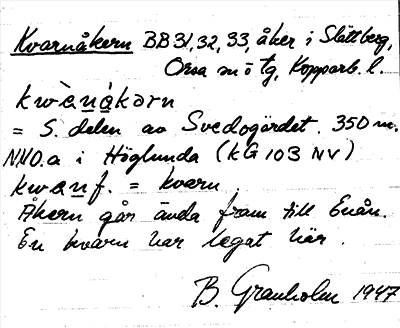 Kvarnåkern BB31,32,33, åker i Slättberg,
Orsa sn o tg, Kopparb. l.
kwànákorn
= S. delen av Svedogärdet. 350 m.
NNO.a i Höglunda (KG 103 NV)
kwan f. = kvarn.
Åkern går ända fram till Enån.
En kvarn har legat här.
B. Granholm 1947